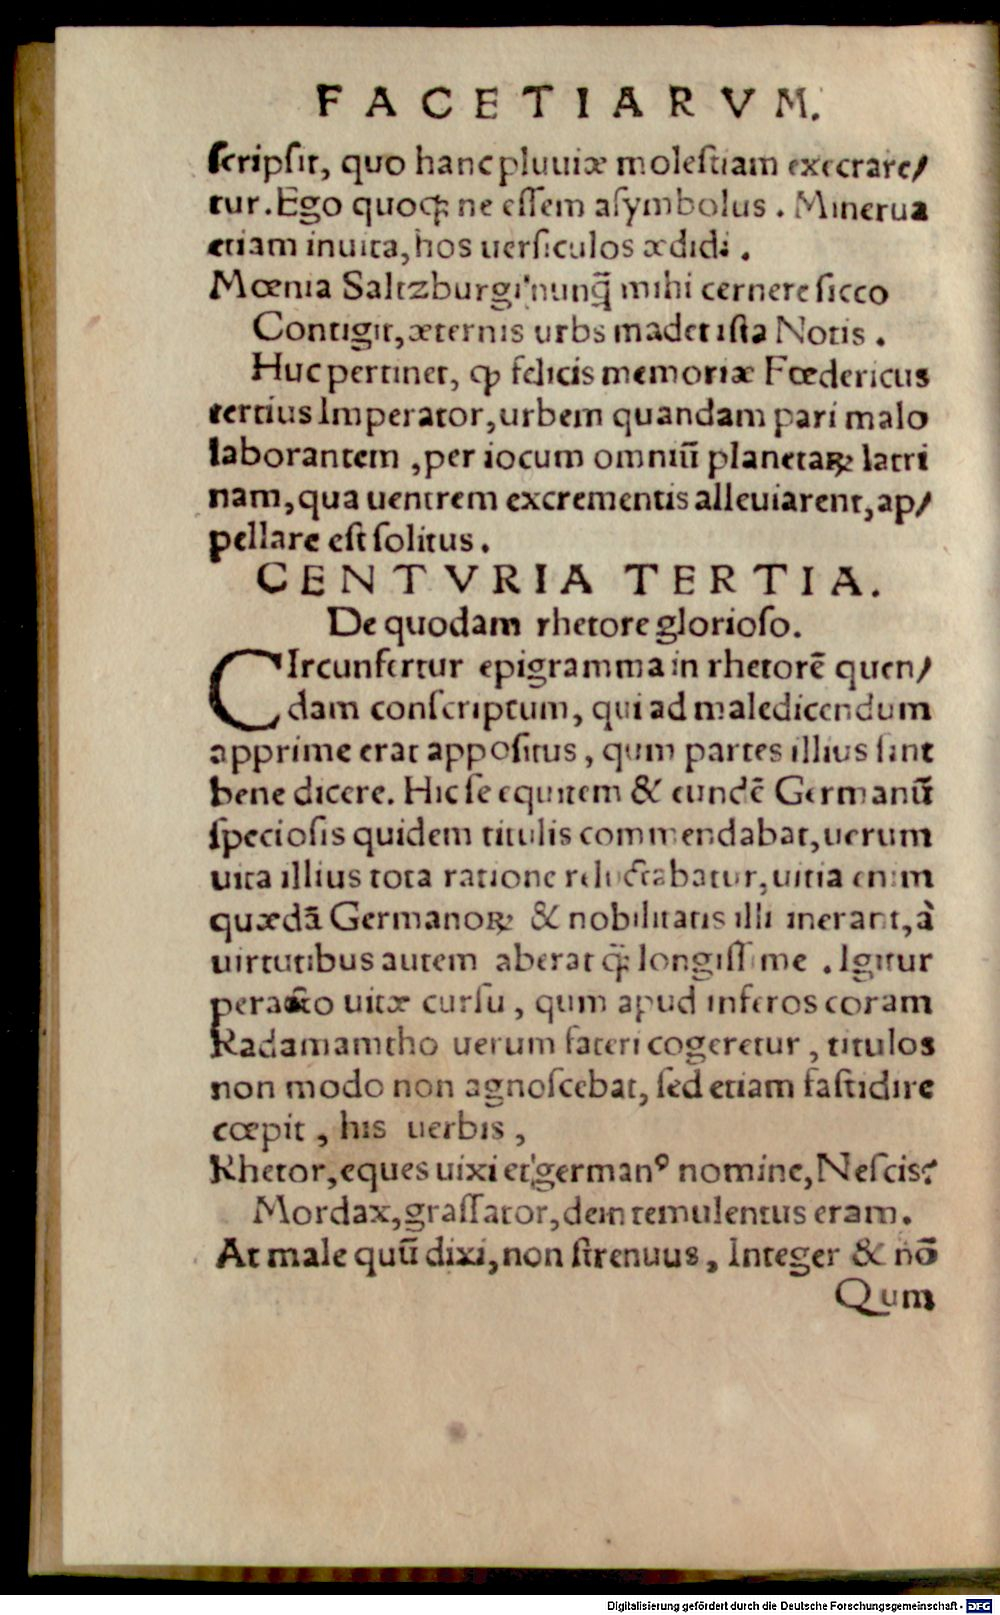 FACETIARVM.
ſcripſit, quo hanc pluuiæ moleſtiam execrare/
tur. Ego quoqꝫ ne eſſem aſymbolus. Minerua
etiam inuita, hos uerſiculos ædidi.
Mœnia Saltzburgi nunq̃ mihi cernere ſicco
Contigit, æternis urbs madet iſta Notis.
Huc pertinet, ꝙ felicis memoriæ Fœdericus
tertius Imperator, urbem quandam pari malo
laborantem, per iocum omniū planetaꝝ latri
nam, qua uentrem excrementis alleuiarent, ap/
pellare eſt ſolitus.
CENTVRIA TERTIA.
De quodam rhetore glorioſo.
CIrcunfertur epigramma in rhetorē quen/
dam conſcriptum, qui ad maledicendum
apprime erat appoſitus, qum partes illius ſint
bene dicere. Hic ſe equitem & eundē Germanū
ſpecioſis quidem titulis commendabat, uerum
uita illius tota ratione reluctabatur, uitia enim
quædã Germanoꝝ & nobilitatis illi inerant, à
uirtutibus autem aberat q̃ꝫ longiſſime. Igitur
peracto uitæ curſu, qum apud inferos coram
Radamamtho uerum fateri cogeretur, titulos
non modo non agnoſcebat, ſed etiam faſtidire
cœpit, his uerbis,
Rhetor, eques uixi et germanꝰ nomine, Neſcis?
Mordax, graſſator, dein temulentus eram.
At male quū dixi, non ſtrenuus, Integer & nō
Qum
Digitalisierung gefördert durch die Deutsche Forschungsgemeinschaft - DFG